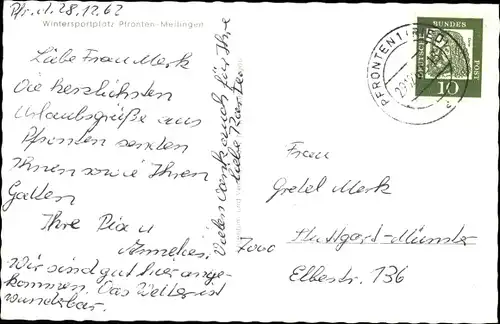 Pfr. d. 28.12.62
Wintersportplatz Pfronten-Meilingen
Liebe Frau Merk
Die herzlichsten
Urlaubsgrüße aus
Pfronten senden
Ihnen sowie Ihren
Gatten
Ihre Pia u
Annelies,
Wir sind gut hier ange-
kommen. Das Wetter ist
wunderbar.
Vielen Dank auch für Ihre
liebe Karte
PFRONTEN 1 (RIED)
DEUTSCHE BUNDESPOST
10
Frau
Gretel Merk
7000 Stuttgart-Münster
Elbestr. 136